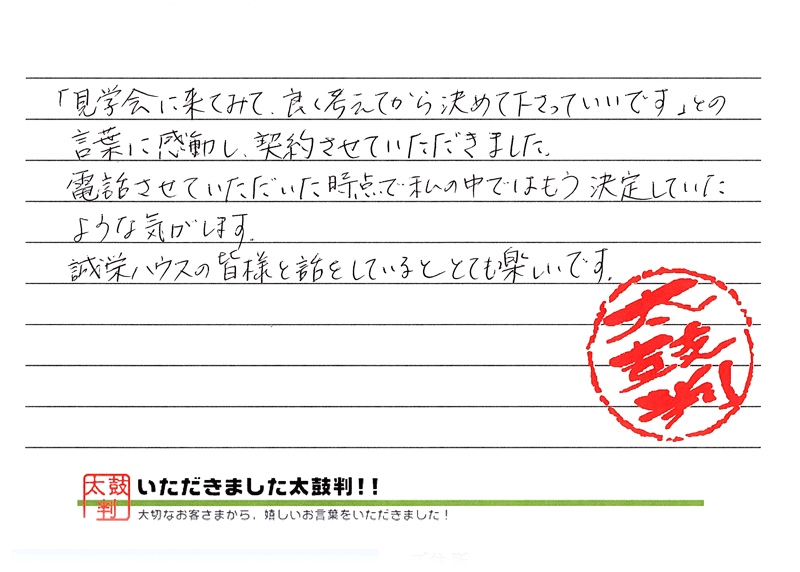 「見学会に来てみて、良く考えてから決めて下さっていいです」との
言葉に感動し、契約させていただきました。
電話させていただいた時点で私の中ではもう決定していた
ような気がします。
誠栄ハウスの皆様と話をしているととても楽しいです。
太
鼓
判
太鼓
判
いただきました太鼓判!!
大切なお客さまから、嬉しいお言葉をいただきました!